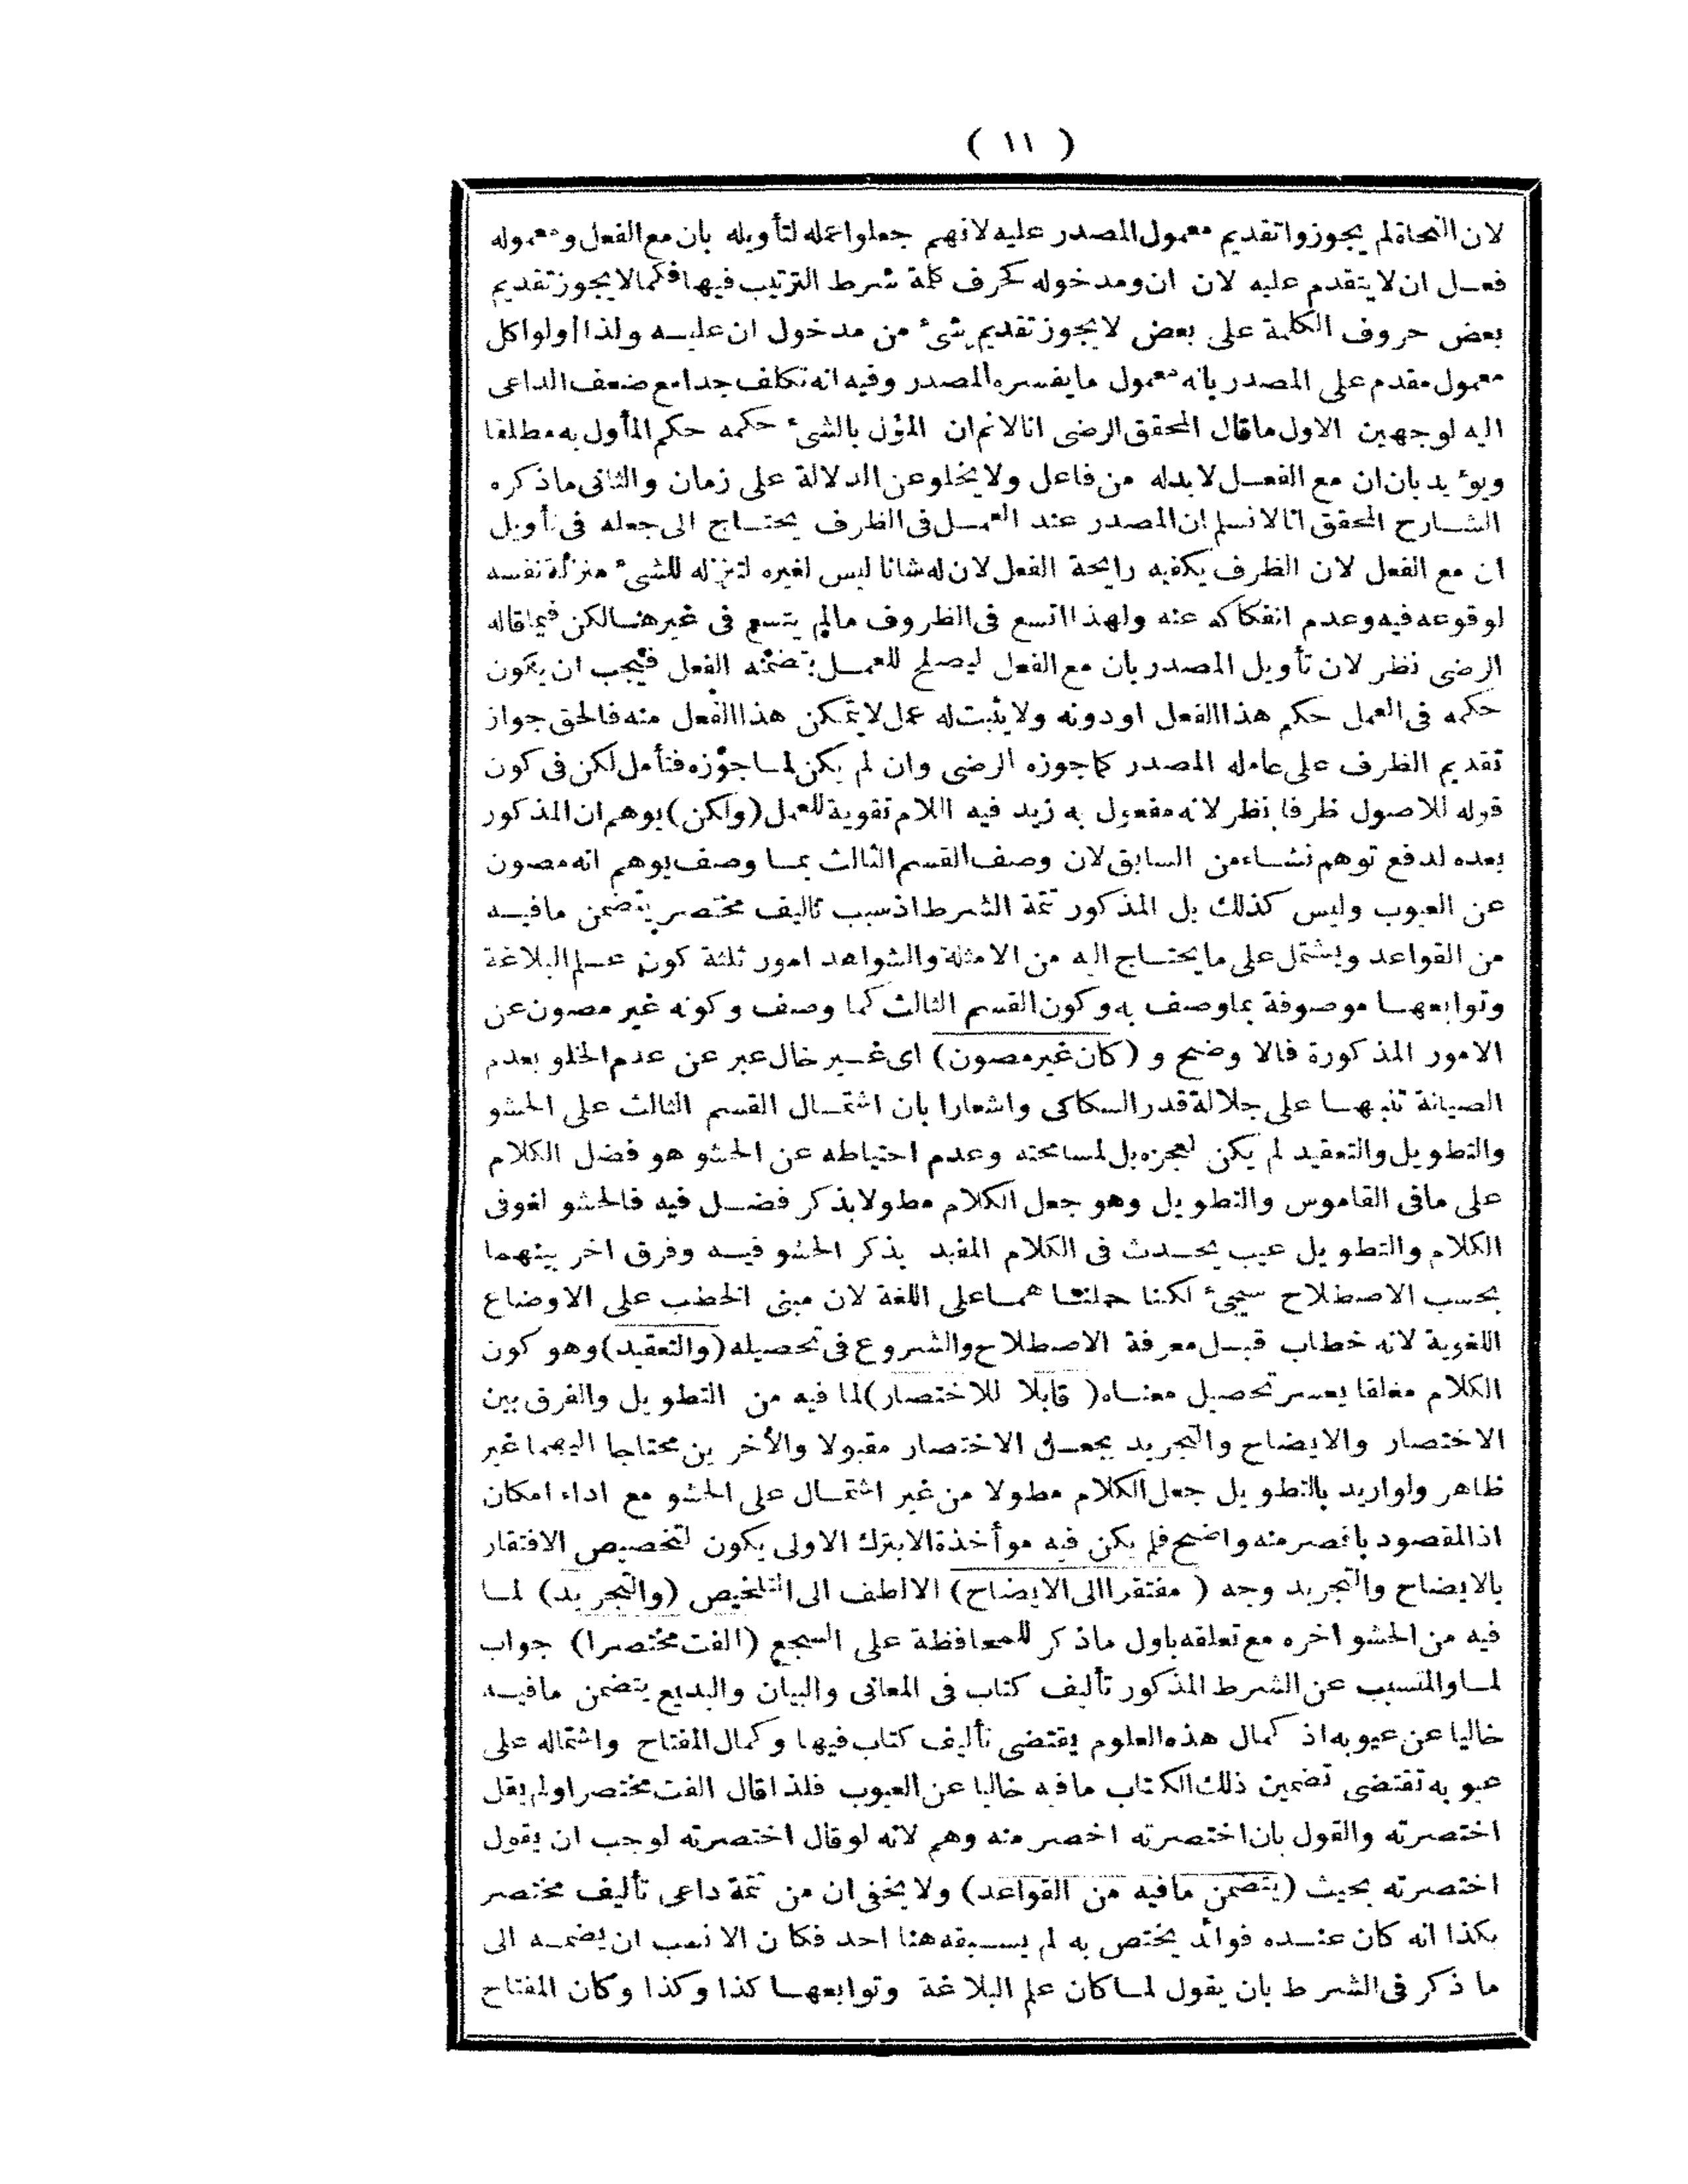 ( ١١ )
لان النحاة لم يجوزوا تقديم معمول المصدر عليه لانهم جعلوا عمله لتأويله بان مع الفعل ومعموله
فعل ان لا يتقدم عليه لان ان ومدخوله كحرف كلمة شرط الترتيب فيها فكما لا يجوز تقديم
بعض حروف الكلمة على بعض لا يجوز تقديم شئ من مدخول ان عليه ولذا اولوا كل
معمول مقدم على المصدر بانه معمول ما يفسره المصدر وفيه انه تكلف جدا مع ضعف الداعى
اليه لوجهين الاول ما قال المحقق الرضى انا لانم ان المؤل بالشئ حكمه حكم المأول به مطلقا
ويؤيد بان ان مع الفعل لا بد له من فاعل ولا يخلو عن الدلالة على زمان والثانى ما ذكره
الشارح المحقق انا لا نسلم ان المصدر عند العمل فى الظرف يحتاج الى جعله فى تأويل
ان مع الفعل لان الظرف يكفيه رايحة الفعل لان له شانا ليس لغيره لتنزله للشئ منزلة نفسه
لوقوعه فيه وعدم انفكاكه عنه ولهذا اتسع فى الظروف مالم يتسع فى غيرهنا لكن فيما قاله
الرضى نظر لان تأويل المصدر بان مع الفعل ليصلح للعمل بتضمنه الفعل فيجب ان يكون
حكمه فى العمل حكم هذا الفعل او دونه ولا يثبت له عمل لا يتمكن هذا الفعل منه فالحق جواز
تقديم الظرف على عامله المصدر كما جوزه الرضى وان لم يكن لما جوزه فتأمل لكن فى كون
قوله للاصول ظرفا نظر لانه مفعول به زيد فيه اللام تقوية للعمل (ولكن) يوهم ان المذكور
بعده لدفع توهم نشاء من السابق لان وصف القسم الثالث بما وصف يوهم انه مصون
عن العيوب وليس كذلك بل المذكور تتمة الشرط اذ سبب تاليف مختصر يتضمن ما فيه
من القواعد ويشتمل على ما يحتاج اليه من الامثلة والشواهد امور ثلثة كون علم البلاغة
وتوابعها موصوفة بما وصف به وكون القسم الثالث كما وصف وكونه غير مصون عن
الامور المذكورة فالاوضح و (كان غير مصون) اى غير خال عبر عن عدم الخلو بعدم
الصيانة تنبيها على جلالة قدر السكاكى واشعارا بان اشتمال القسم الثالث على الحشو
والتطويل والتعقيد لم يكن لعجزه بل لمسامحته وعدم احتياطه عن الحشو هو فضل الكلام
على ما فى القاموس والتطويل وهو جعل الكلام مطولا بذكر فضل فيه فالحشو لغو فى
الكلام والتطويل عيب يحدث فى الكلام المفيد بذكر الحشو فيه وفرق اخر بينهما
بحسب الاصطلاح سيجئ لكنا حملنا هما على اللغة لان مبنى الخطب على الاوضاع
اللغوية لانه خطاب قبل معرفة الاصطلاح والشروع فى تحصيله (والتعقيد) وهو كون
الكلام مغلقا يعسر تحصيل معناه ( قابلا للاختصار) لما فيه من التطويل والفرق بين
الاختصار والايضاح والتجريد بجعل الاختصار مقبولا والأخرين محتاجا اليهما غير
ظاهر ولو اريد بالتطويل جعل الكلام مطولا من غير اشتمال على الحشو مع اداء امكان
اذ المقصود باخصر منه واضح فلم يكن فيه مواخذة الا بترك الاولى يكون لتخصيص الافتقار
بالايضاح والتجريد وجه ( مفتقرا الى الايضاح) الالطف الى التلخيص (والتجريد) لما
فيه من الحشو اخره مع تعلقه باول ما ذكر للمحافظة على السجع (الفت مختصرا) جواب
لما والمتسبب عن الشرط المذكور تأليف كتاب فى المعانى والبيان والبديع يتضمن ما فيه
خاليا عن عيوبه اذ كمال هذه العلوم يقتضى تأليف كتاب فيها وكمال المفتاح واشتماله على
عيوبه تقتضى تضمين ذلك الكتاب ما فيه خاليا عن العيوب فلذا قال الفت مختصرا ولم يقل
اختصرته والقول بان اختصرته اخصر منه وهم لانه لو قال اختصرته لوجب ان يقول
اختصرته بحيث (يتضمن ما فيه من القواعد) ولا يخفى ان من تتمة داعى تأليف مختصر
بكذا انه كان عنده فوائد يختص به لم يسبقه هنا احد فكان الانسب ان يضمه الى
ما ذكر فى الشرط بان يقول لما كان علم البلاغة وتوابعها كذا وكذا وكان المفتاح